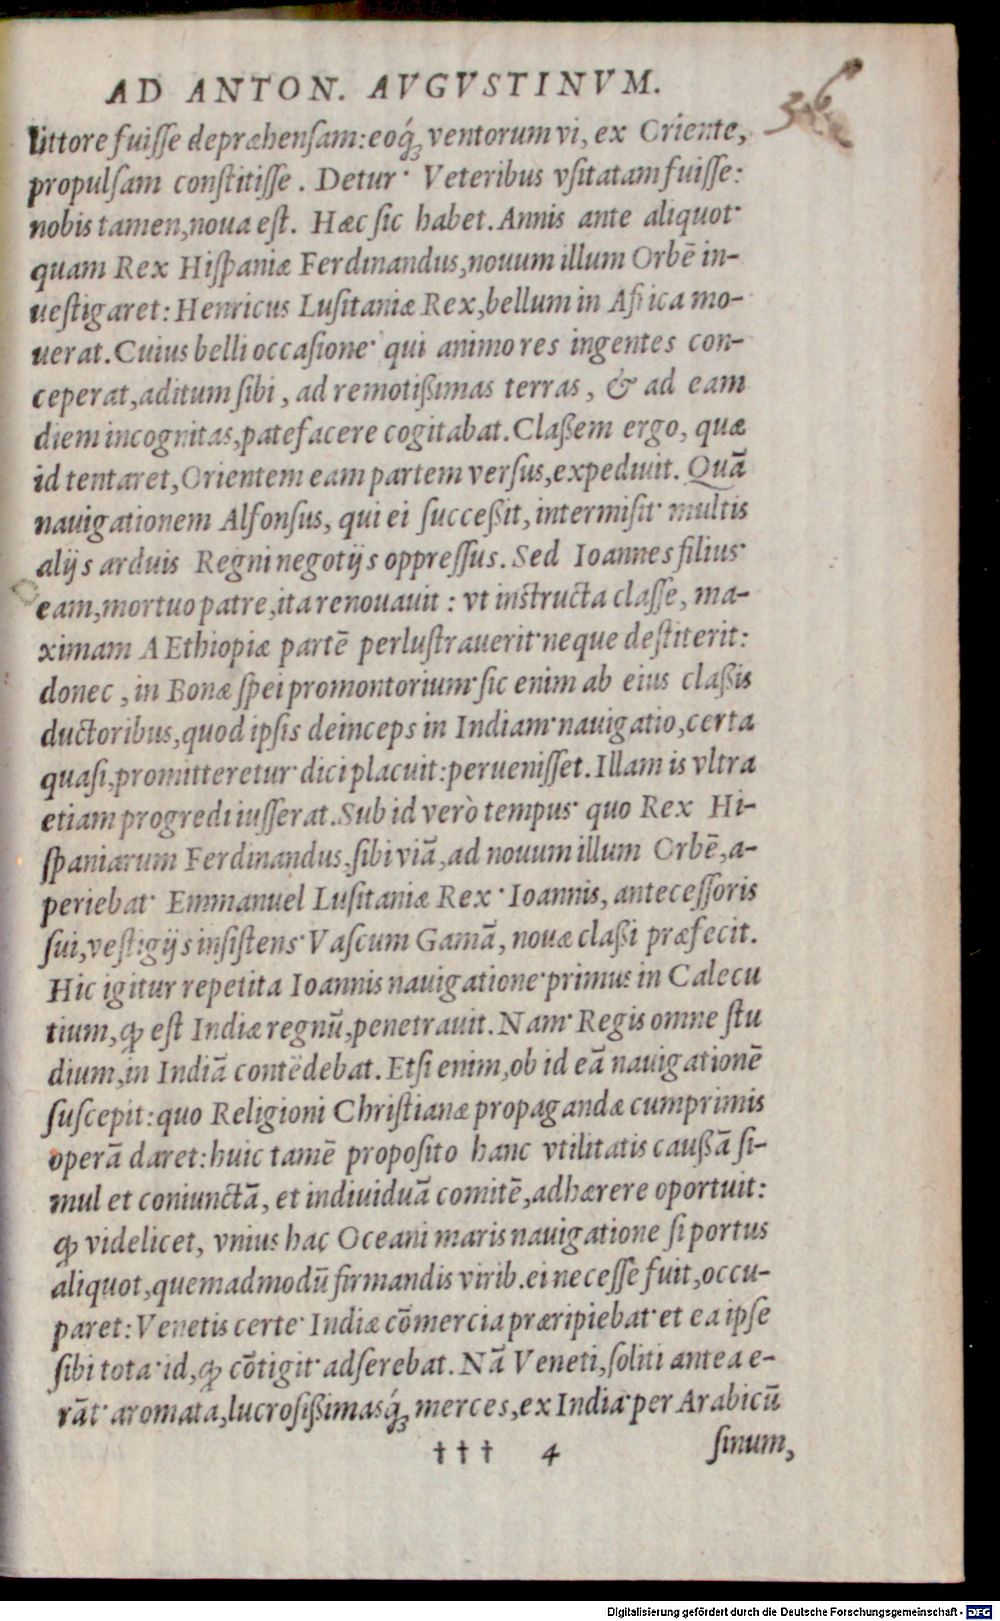 AD ANTON. AVGVSTINVM.
littore fuiſſe depræhenſam: eoq́ꝫ ventorum vi, ex Oriente,
propulſam conſtitiſſe. Detur· Veteribus vſitatam fuiſſe:
nobis tamen, noua eſt. Hæc ſic habet. Annis ante aliquot·
quam Rex Hiſpaniæ Ferdinandus, nouum illum Orbē in-
ueſtigaret: Henricus Luſitaniæ Rex, bellum in Africa mo-
uerat. Cuius belli occaſione· qui animo res ingentes con-
ceperat, aditum ſibi, ad remotißimas terras, & ad eam
diem incognitas, patefacere cogitabat. Claßem ergo, quæ
id tentaret, Orientem eam partem verſus, expediuit. Quā
nauigationem Alfonſus, qui ei ſucceßit, intermiſit· multis
alijs arduis Regni negotijs oppreſſus. Sed Ioannes filius·
eam, mortuo patre, ita renouauit: vt inſtructa claſſe, ma-
ximam AEthiopiæ partē perluſtrauerit· neque deſtiterit:
donec, in Bonæ ſpei promontorium· ſic enim ab eius claßis
ductoribus, quod ipſis deinceps in Indiam· nauigatio, certa
quaſi, promitteretur· dici placuit: perueniſſet. Illam is vltra
etiam progredi iuſſerat. Sub id verò tempus· quo Rex Hi-
ſpaniarum Ferdinandus, ſibi viā, ad nouum illum Orbē, a-
periebat· Emmanuel Luſitaniæ Rex· Ioannis, anteceſſoris
ſui, veſtigijs inſiſtens· Vaſcum Gamā, nouæ claßi præfecit.
Hic igitur repetita Ioannis nauigatione· primus in Calecu
tium, ꝙ eſt Indiæ regnū, penetrauit. Nam· Regis omne ſtu
dium, in Indiā contēdebat. Etſi enim, ob id eā nauigationē
ſuſcepit: quo Religioni Chriſtianæ propagandæ cumprimis
operā daret: huic tamē propoſito hanc vtilitatis cauſſā ſi-
mul et coniunctā, et indiuiduā comitē, adhærere oportuit:
ꝙ videlicet, vnius hac Oceani maris nauigatione ſi portus
aliquot, quemadmodū firmandis virib. ei neceſſe fuit, occu-
paret: Venetis certe· Indiæ cōmercia præripiebat· et ea ipſe
ſibi tota· id, ꝙ cōtigit· adſerebat. Nā Veneti, ſoliti antea e-
rāt· aromata, lucroſißimasq́ꝫ merces, ex India· per Arabicū
††† 4 ſinum,
Digitalisierung gefördert durch die Deutsche Forschungsgemeinschaft - DFG